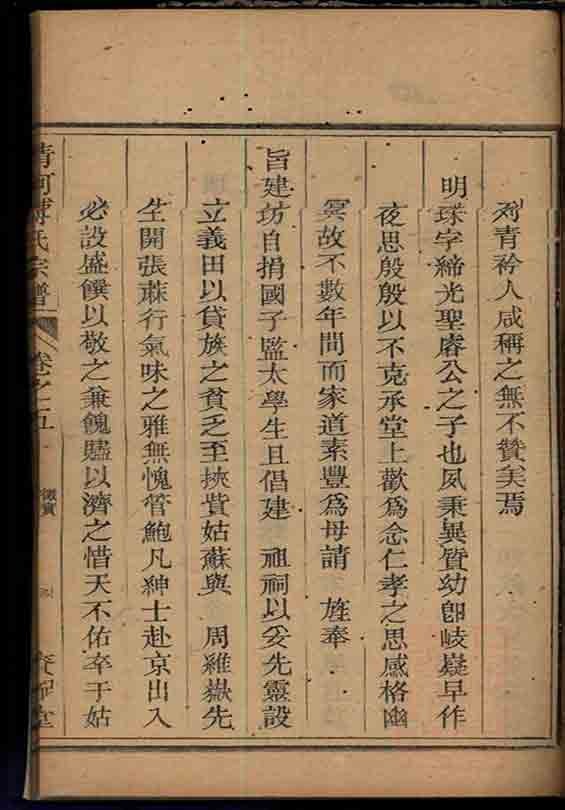 列青衿人咸稱之無不贊美焉
明珠字締光聖睿公之子也夙秉異質幼即岐嶷早作
夜思殷殷以不克承堂上歡為念仁孝之思感格幽
冥故不數年間而家道素豐為母請 旌奉
旨建坊自捐國子監太學生且倡建 祖祠以妥先靈設
立義田以貸族之貧乏至挾貲姑蘇與 周維嶽先
生開張蔴行氣味之雅無愧管鮑凡紳士赴京出入
必設盛饌以敬之兼餽贐以濟之惜天不佑卒于姑
清河傅氏宗譜
卷之五
徵實